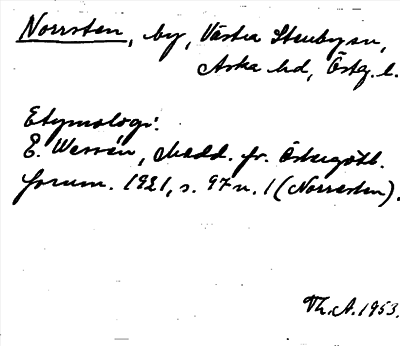 Norrsten, by, Västra Stenby sn,
Aska hd, Östg. l.
Etymologi:
E. Wessén, Medd. fr. Östergötl.
fornm. 1921, s. 97 n. 1 (Norrsten).
Th. A. 1953.